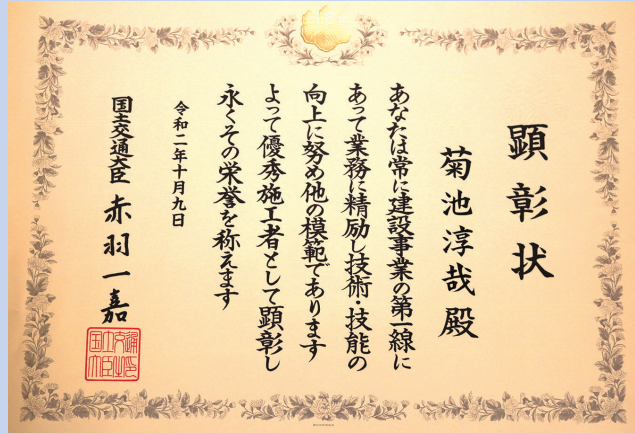 顕彰状
菊池淳哉殿
あなたは常に建設事業の第一線に
あって業務に精励し技術・技能の
向上に努め他の模範であります
よって優秀施工者として顕彰し
永くその栄誉を称えます
令和二年十月九日
国土交通大臣 赤羽一嘉